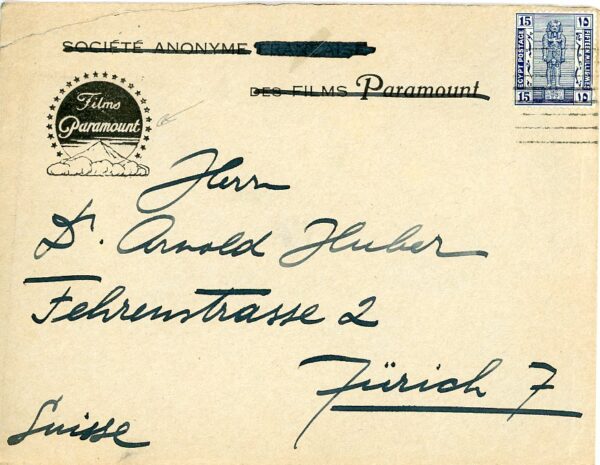 SOCIÉTÉ ANONYME FRANÇAISE
DES FILMS Paramount
Films
Paramount
15 ١٥
EGYPT POSTAGE
15 ١٥
Herrn
Dr. Arnold Huber
Fehrenstrasse 2
Zürich 7
Suisse